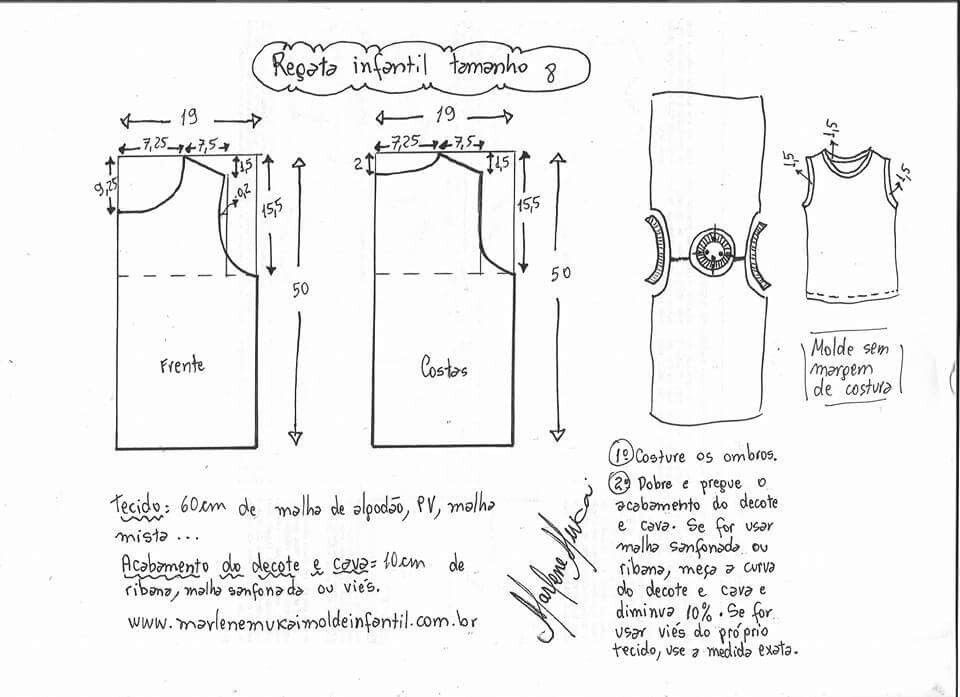 Regata infantil tamanho 8
19
7,25 7,5
9,25
1,5
0,2
15,5
50
Frente
19
7,25 7,5
2
1,5
15,5
50
Costas
1,5
1,5
1,5
Molde sem
margem
de costura
Tecido: 60cm de malha de algodão, PV, malha
mista ...
Acabamento do decote e cava = 10cm de
ribana, malha sanfonada ou viés.
www.marlenemukaimoldeinfantil.com.br
Marlene Mukai
1º Costure os ombros.
2º Dobre e pregue o
acabamento do decote
e cava. Se for usar
malha sanfonada ou
ribana, meça a curva
do decote e cava e
diminua 10%. Se for
usar viés do próprio
tecido, use a medida exata.